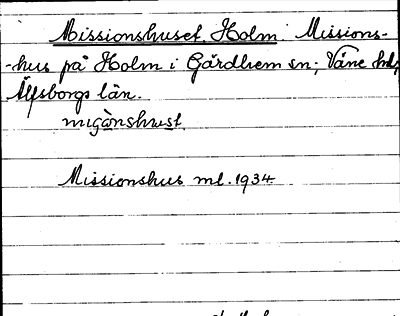 Missionshuset Holm. Missions-
-hus på Holm i Gärdhem sn; Väne hd,
Älfsborgs län.
migånshust.
Missionshus ml. 1934